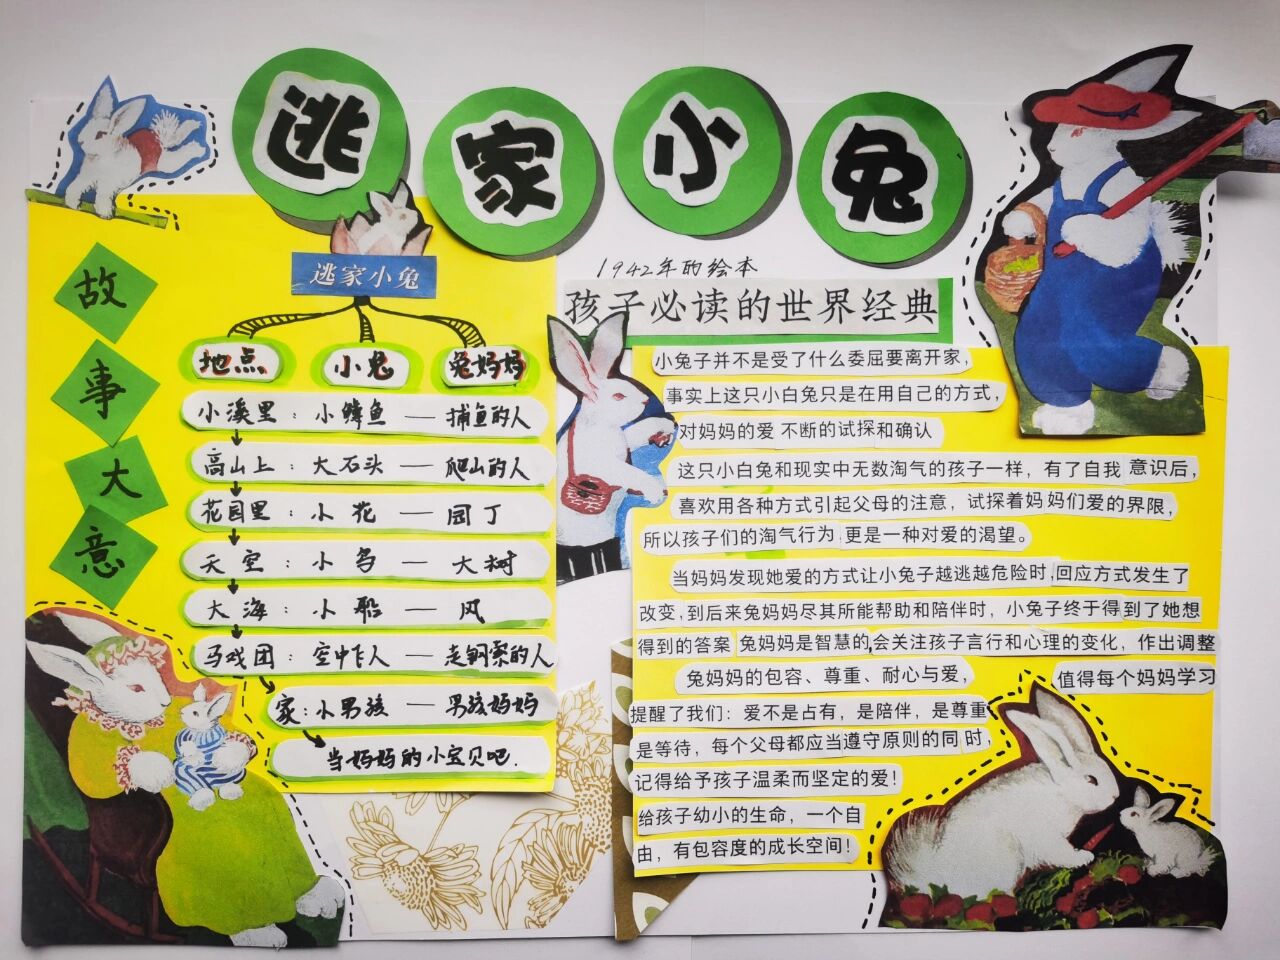 逃家小兔
1942年的绘本
孩子必读的世界经典
故事大意
逃家小兔
地点 小兔 兔妈妈
小溪里：小鳟鱼——捕鱼的人
高山上：大石头——爬山的人
花园里：小花——园丁
天空：小鸟——大树
大海：小船——风
马戏团：空中飞人——走钢索的人
家：小男孩——男孩妈妈
当妈妈的小宝贝吧.
小兔子并不是受了什么委屈要离开家，
事实上这只小白兔只是在用自己的方式，
对妈妈的爱 不断的试探和确认
这只小白兔和现实中无数淘气的孩子一样，有了自我 意识后，
喜欢用各种方式引起父母的注意，试探着妈妈们爱的界限，
所以孩子们的淘气行为 更是一种对爱的渴望。
当妈妈发现她爱的方式让小兔子越逃越危险时,回应方式发生了
改变,到后来兔妈妈尽其所能帮助和陪伴时，小兔子终于得到了她想
得到的答案 兔妈妈是智慧的,会关注孩子言行和心理的变化，作出调整
兔妈妈的包容、尊重、耐心与爱， 值得每个妈妈学习
提醒了我们：爱不是占有，是陪伴，是尊重
是等待，每个父母都应当遵守原则的同时，
记得给予孩子温柔而坚定的爱！
给孩子幼小的生命，一个自
由，有包容度的成长空间！